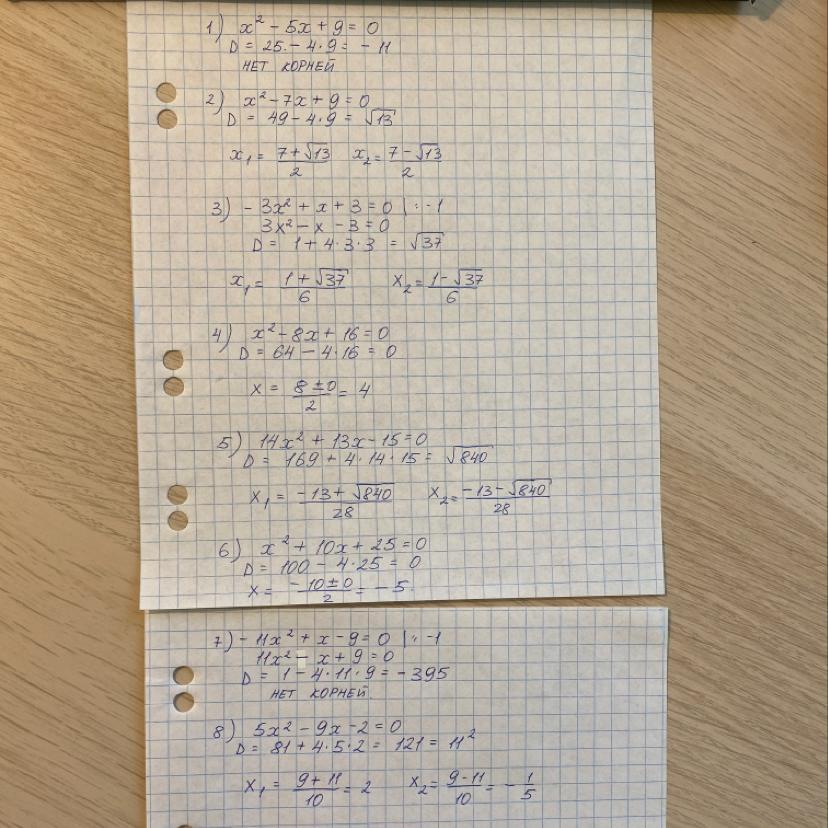 1) x² - 5x + 9 = 0
D = 25 - 4·9 = - 11
НЕТ КОРНЕЙ
2) x² - 7x + 9 = 0
D = 49 - 4·9 = √13
x₁ = (7+√13)/2 x₂ = (7-√13)/2
3) - 3x² + x + 3 = 0 | : -1
3x² - x - 3 = 0
D = 1 + 4·3·3 = √37
x₁ = (1+√37)/6 x₂ = (1-√37)/6
4) x² - 8x + 16 = 0
D = 64 - 4·16 = 0
x = (8±0)/2 = 4
5) 14x² + 13x - 15 = 0
D = 169 + 4·14·15 = √840
x₁ = (-13+√840)/28 x₂ = (-13-√840)/28
6) x² + 10x + 25 = 0
D = 100 - 4·25 = 0
x = (-10±0)/2 = -5
7) - 11x² + x - 9 = 0 | : -1
11x² - x + 9 = 0
D = 1 - 4·11·9 = - 395
НЕТ КОРНЕЙ
8) 5x² - 9x - 2 = 0
D = 81 + 4·5·2 = 121 = 11²
x₁ = (9+11)/10 = 2 x₂ = (9-11)/10 = - 1/5